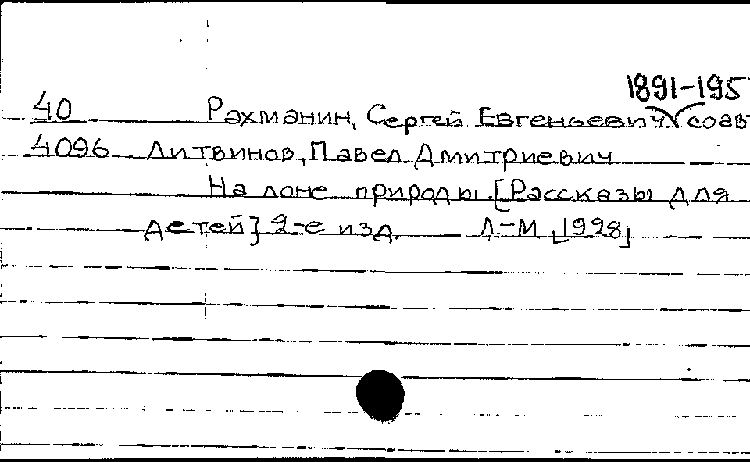 1891-195
40 Рахманин, Сергей Евгеньевич соав
4096 Литвинов, Павел Дмитриевич
На лоне природы. [Рассказы для
детей] 2-е изд. Л-М, 1928